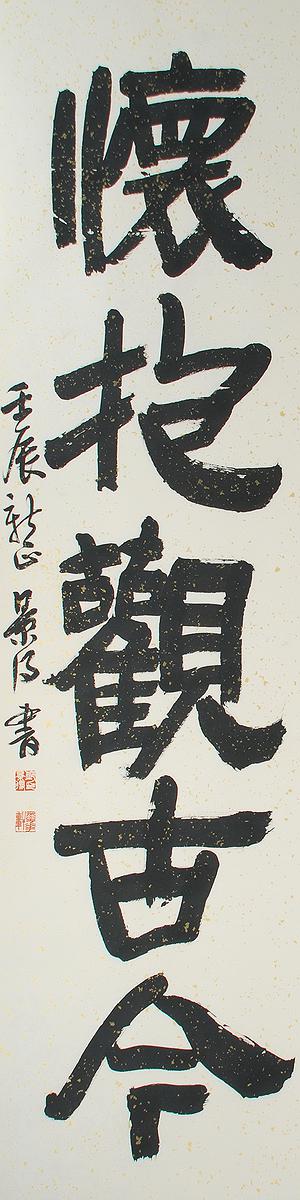 懷抱觀古今
壬辰新正 景濤 書